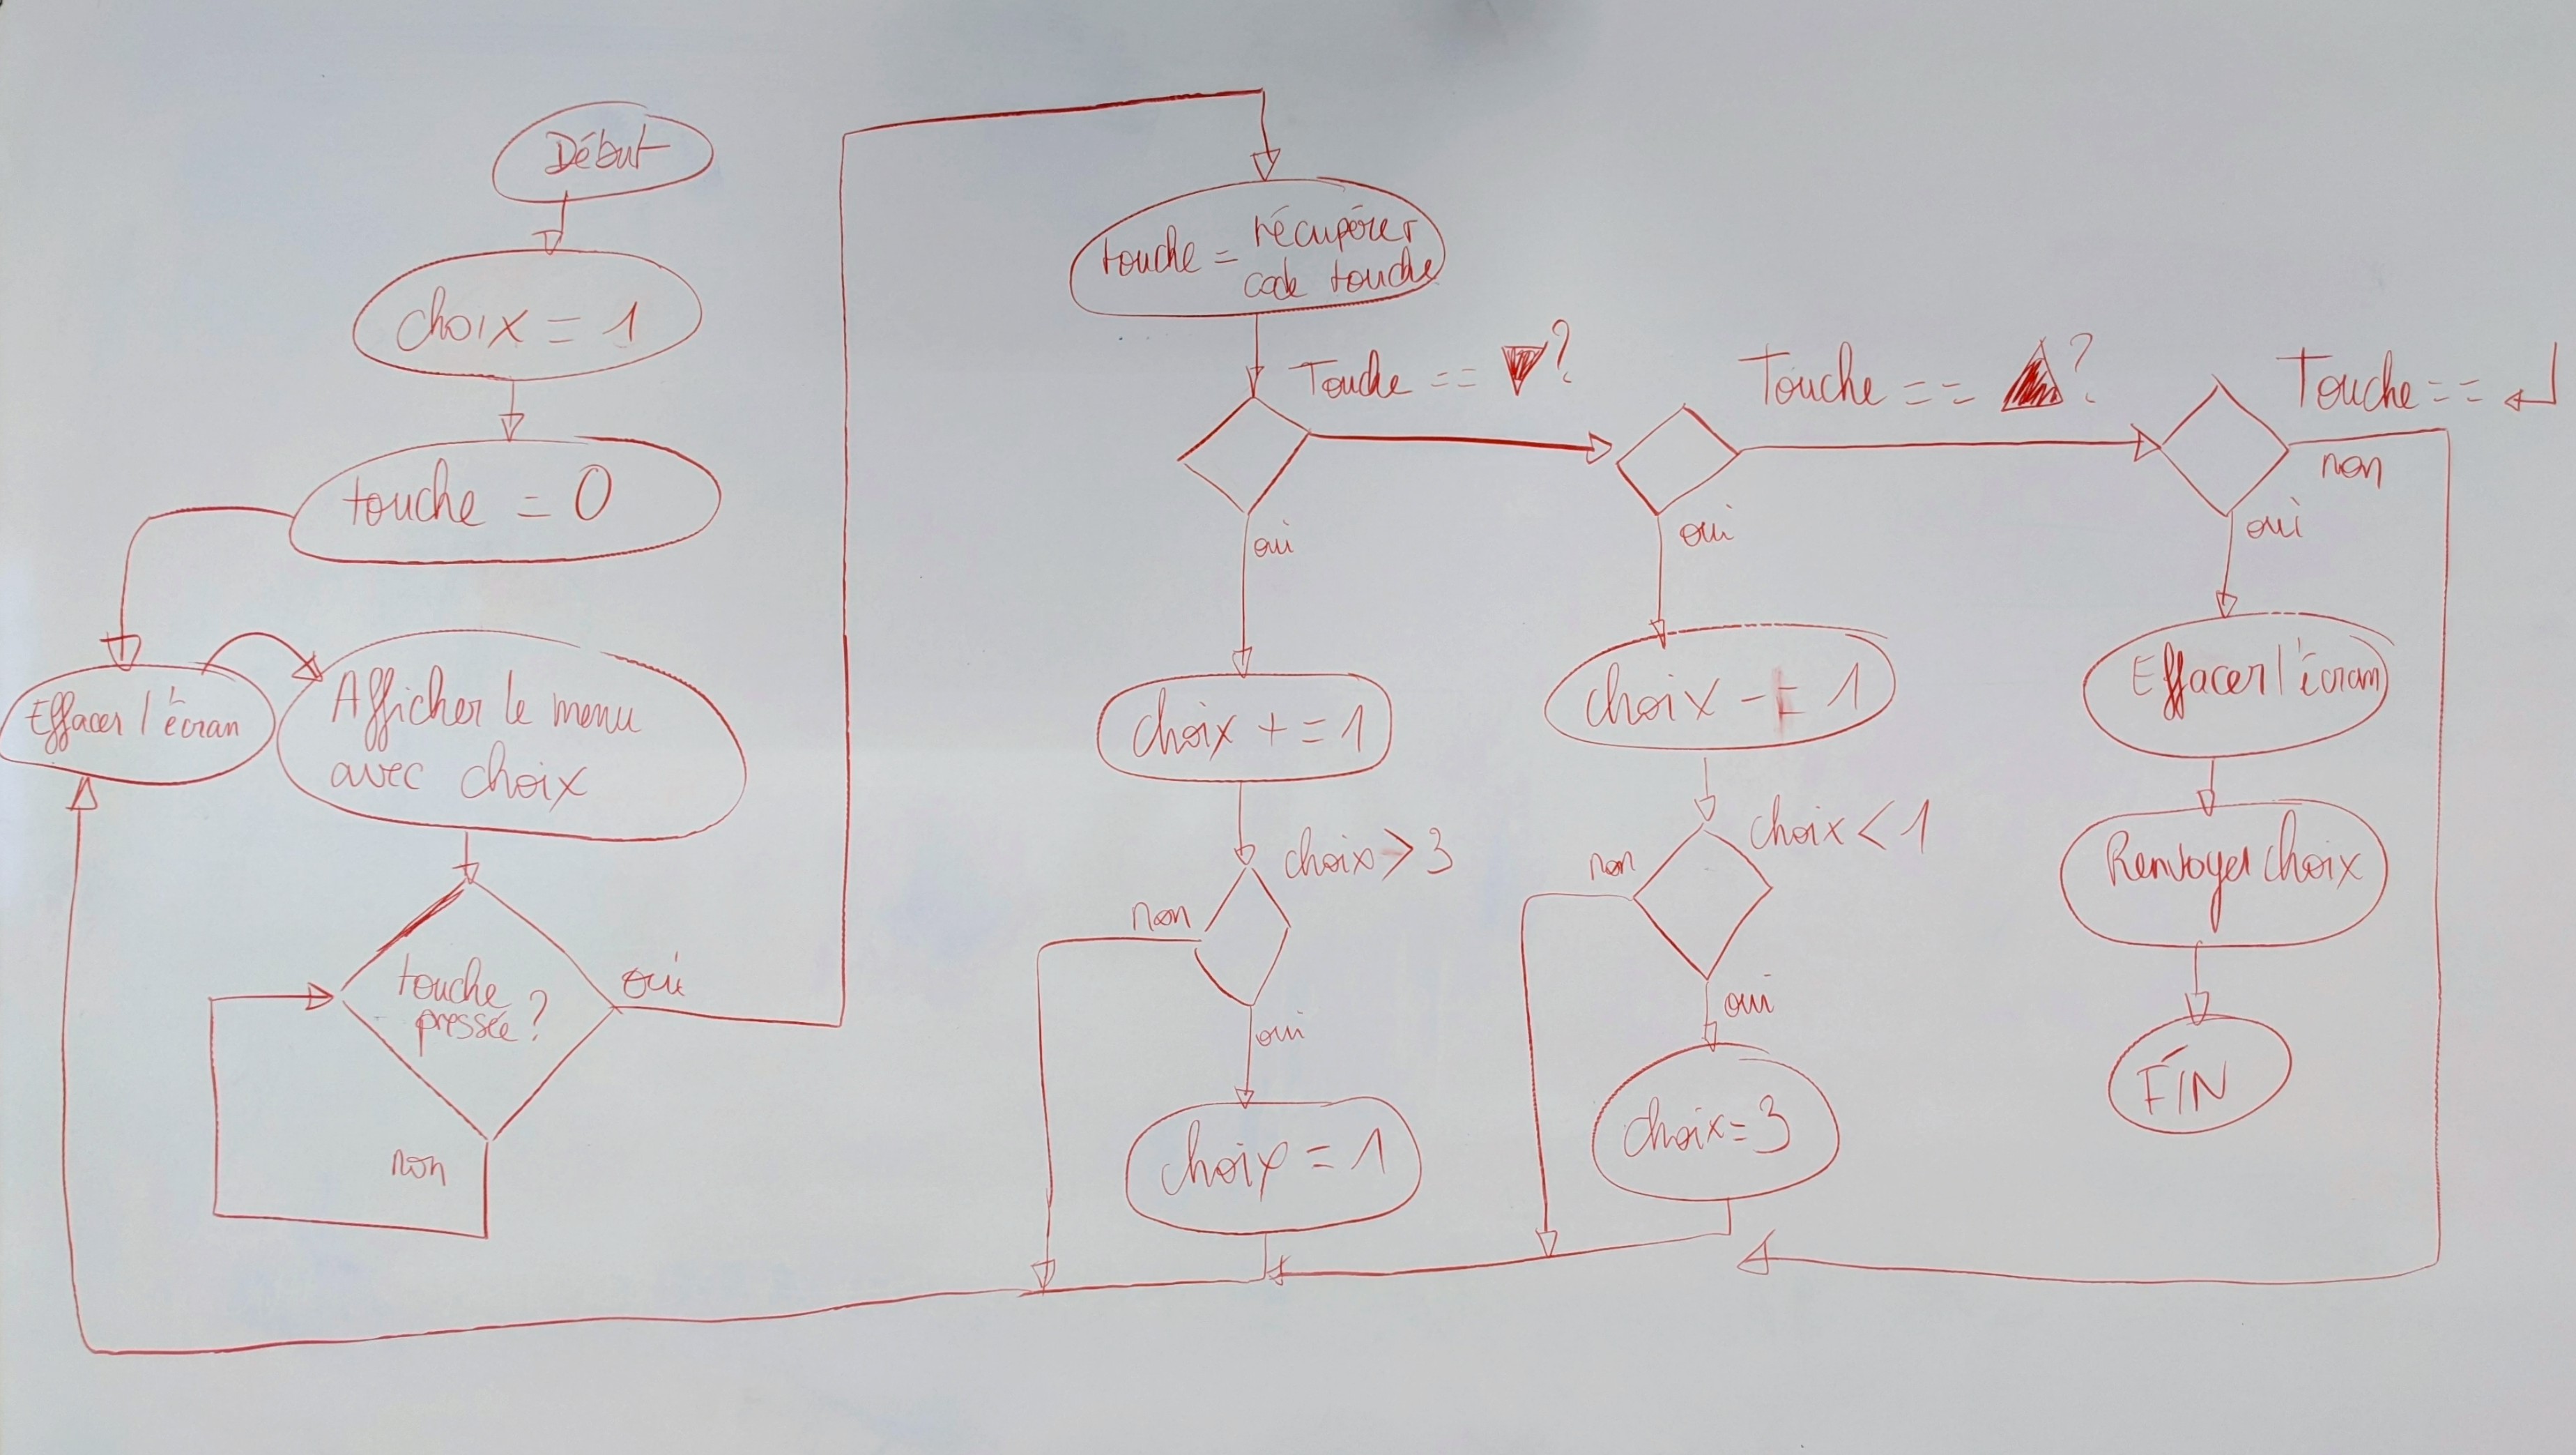 Début
choix = 1
touche = 0
Effacer l'écran
Afficher le menu
avec choix
touche
pressée ?
oui
non
touche = récupérer
code touche
Touche == ▼ ?
oui
choix += 1
choix > 3
non
oui
choix = 1
Touche == ▲ ?
oui
choix -= 1
choix < 1
non
oui
choix = 3
Touche == ↵
non
oui
Effacer l'écran
Renvoyer choix
FIN